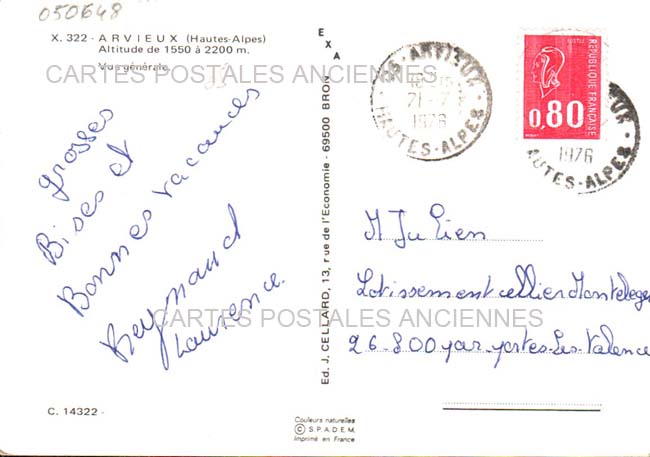 050648
X. 322 - ARVIEUX (Hautes-Alpes)
Altitude de 1550 à 2200 m.
Vue générale
CARTES POSTALES ANCIENNES
grosses
Bises et
Bonnes vacances
Reynaud
Laurence.
C. 14322 -
EXA
Ed. J. CELLARD, 13, rue de l'Economie - 69500 BRON
Couleurs naturelles
© S.P.A.D.E.M.
Imprimé en France
ARVIEUX
21-7
1976
HAUTES-ALPES
POSTES
REPUBLIQUE FRANÇAISE
0,80
1976
HAUTES-ALPES
M Julien
Lotissement cellier Monteleger
26.800 par portes-les-Valence
CARTES POSTALES ANCIENNES